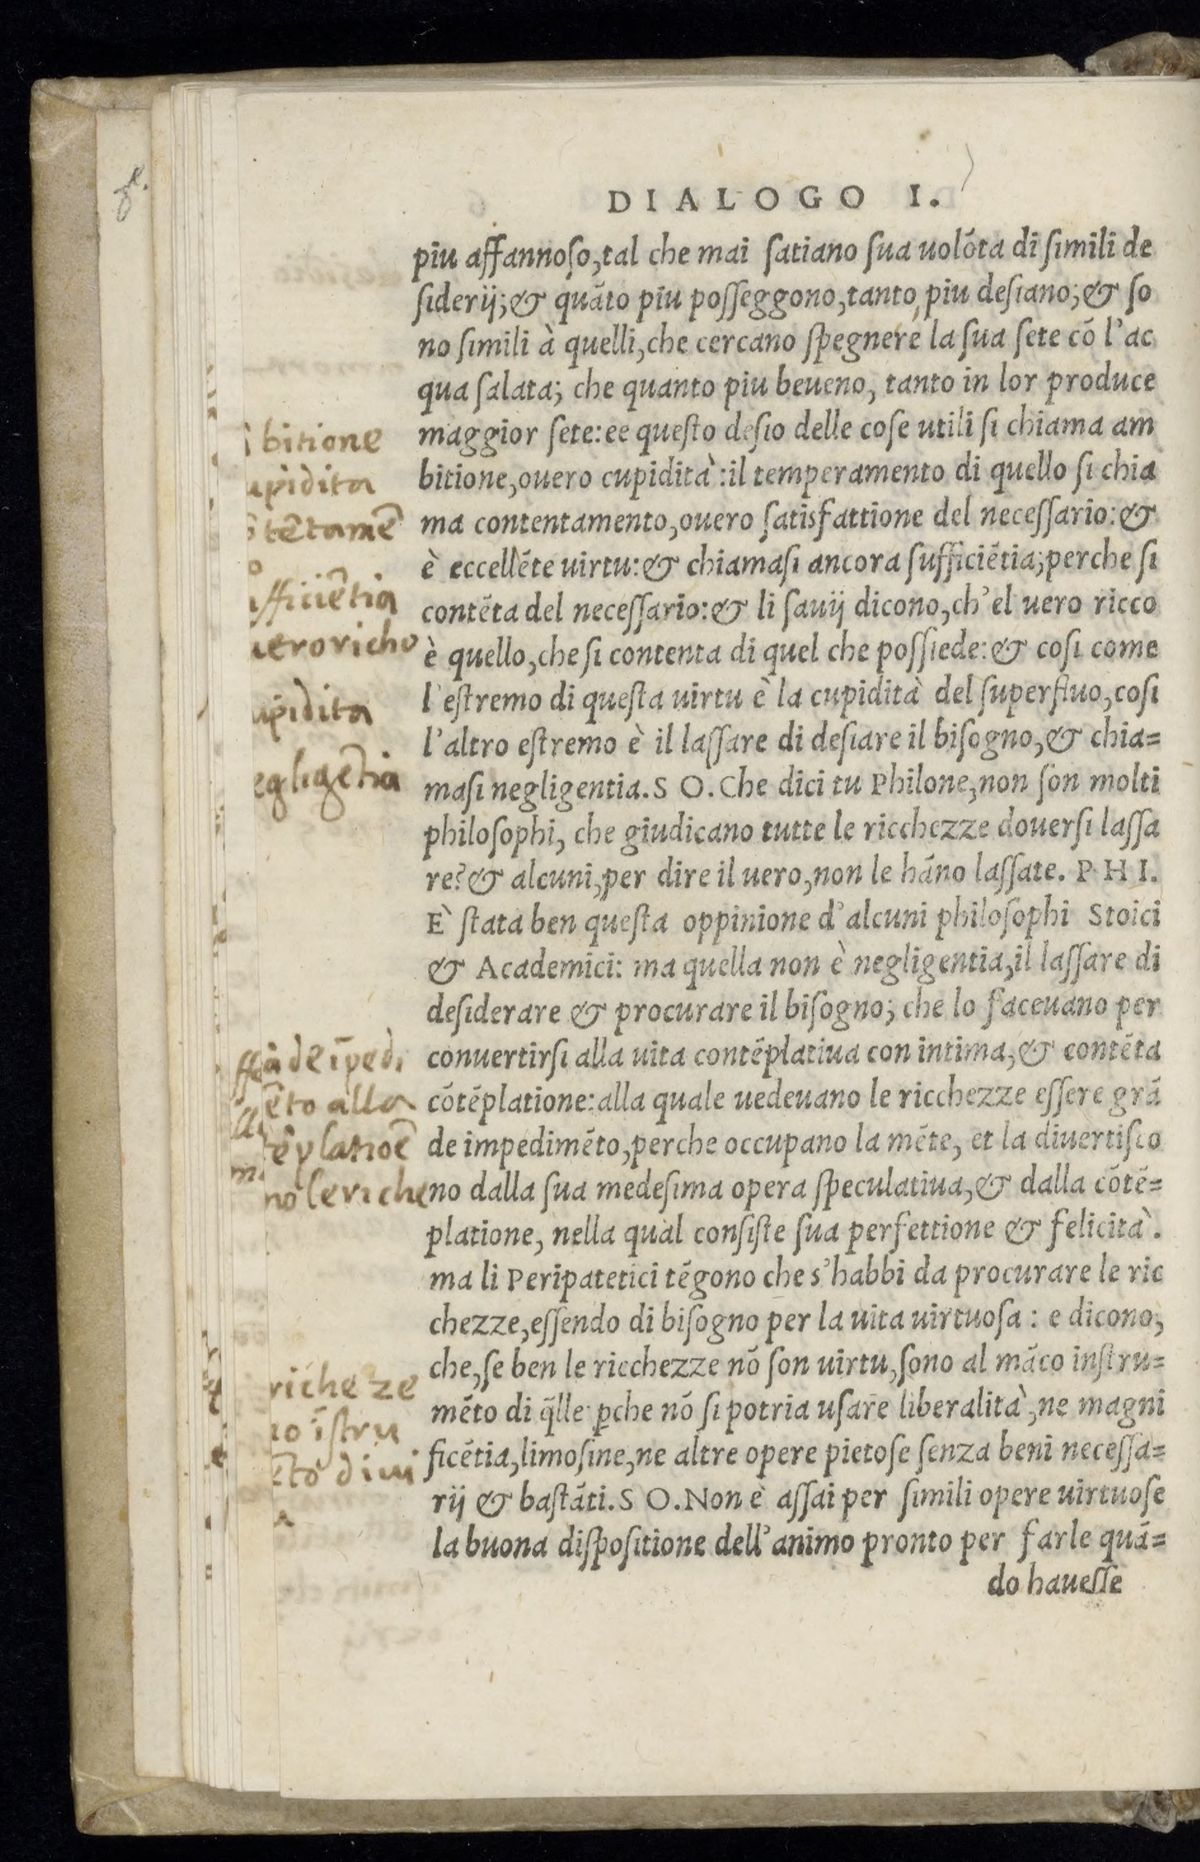 DIALOGO I.
piu affannoso,tal che mai satiano sua uolõta di simili de
siderij;& quãto piu posseggono,tanto piu desiano;& so
no simili à quelli,che cercano spegnere la sua sete cõ l'ac
qua salata; che quanto piu beueno, tanto in lor produce
maggior sete:ee questo desio delle cose utili si chiama am
bitione,ouero cupidità:il temperamento di quello si chia
ma contentamento,ouero satisfattione del necessario:&
è eccellẽte uirtu:& chiamasi ancora sufficiẽtia;perche si
contẽta del necessario:& li sauij dicono,ch'el uero ricco
è quello,che si contenta di quel che possiede:& cosi come
l'estremo di questa uirtu è la cupidità del superfluo,cosi
l'altro estremo è il lassare di desiare il bisogno,& chia=
masi negligentia.S O.Che dici tu Philone,non son molti
philosophi, che giudicano tutte le ricchezze douersi lassa
re?& alcuni,per dire il uero,non le hãno lassate. P H I.
È stata ben questa oppinione d'alcuni philosophi Stoici
& Academici: ma quella non è negligentia,il lassare di
desiderare & procurare il bisogno; che lo faceuano per
conuertirsi alla uita contẽplatiua con intima,& contẽta
cõtẽplatione:alla quale uedeuano le ricchezze essere grã
de impedimẽto,perche occupano la mẽte, et la diuertisco
no dalla sua medesima opera speculatiua,& dalla cõtẽ=
platione, nella qual consiste sua perfettione & felicità.
ma li Peripatetici tẽgono che s'habbi da procurare le ric
chezze,essendo di bisogno per la uita uirtuosa : e dicono,
che,se ben le ricchezze nõ son uirtu,sono al mãco instru=
mẽto di q̃lle ꝑche nõ si potria usare liberalità,ne magni
ficẽtia,limosine,ne altre opere pietose senza beni necessa=
rij & bastãti.S O.Non è assai per simili opere uirtuose
la buona dispositione dell'animo pronto per farle quã=
do hauesse
bitione
upidita
tẽtamẽ
o
ufficiẽtia
uero richo
upidita
egligẽtia
ade ĩpedi
ẽto alla
tẽplatioẽ
no le riche
richeze
no ĩstru
ẽto di ui